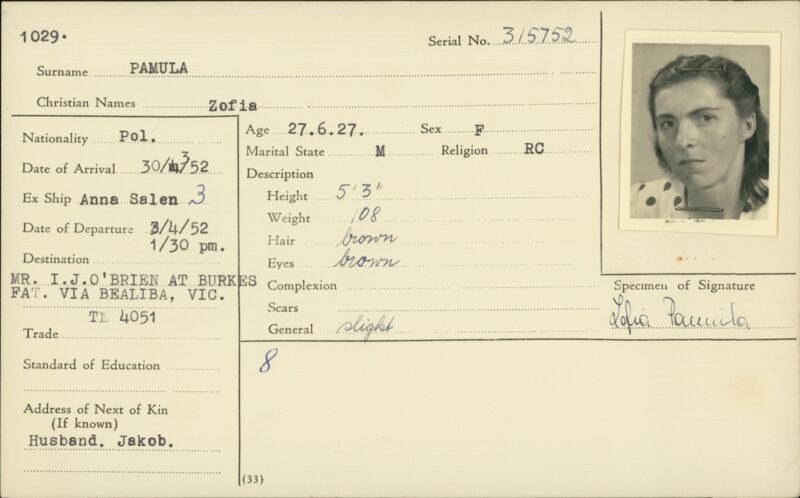 1029.
Serial No. 315752
Surname PAMULA
Christian Names Zofia
Nationality Pol.
Date of Arrival 30/3/52
Ex Ship Anna Salen 3
Date of Departure 3/4/52
1/30 pm.
Destination
MR. I.J.O'BRIEN AT BURKES
FAT. VIA BEALIBA, VIC.
TE 4051
Trade
Standard of Education
Address of Next of Kin
(If known)
Husband. Jakob.
Age 27.6.27. Sex F
Marital State M Religion RC
Description
Height 5'3"
Weight 108
Hair brown
Eyes brown
Complexion
Scars
General slight
8
(33)
Specimen of Signature
Zofia Pamuła